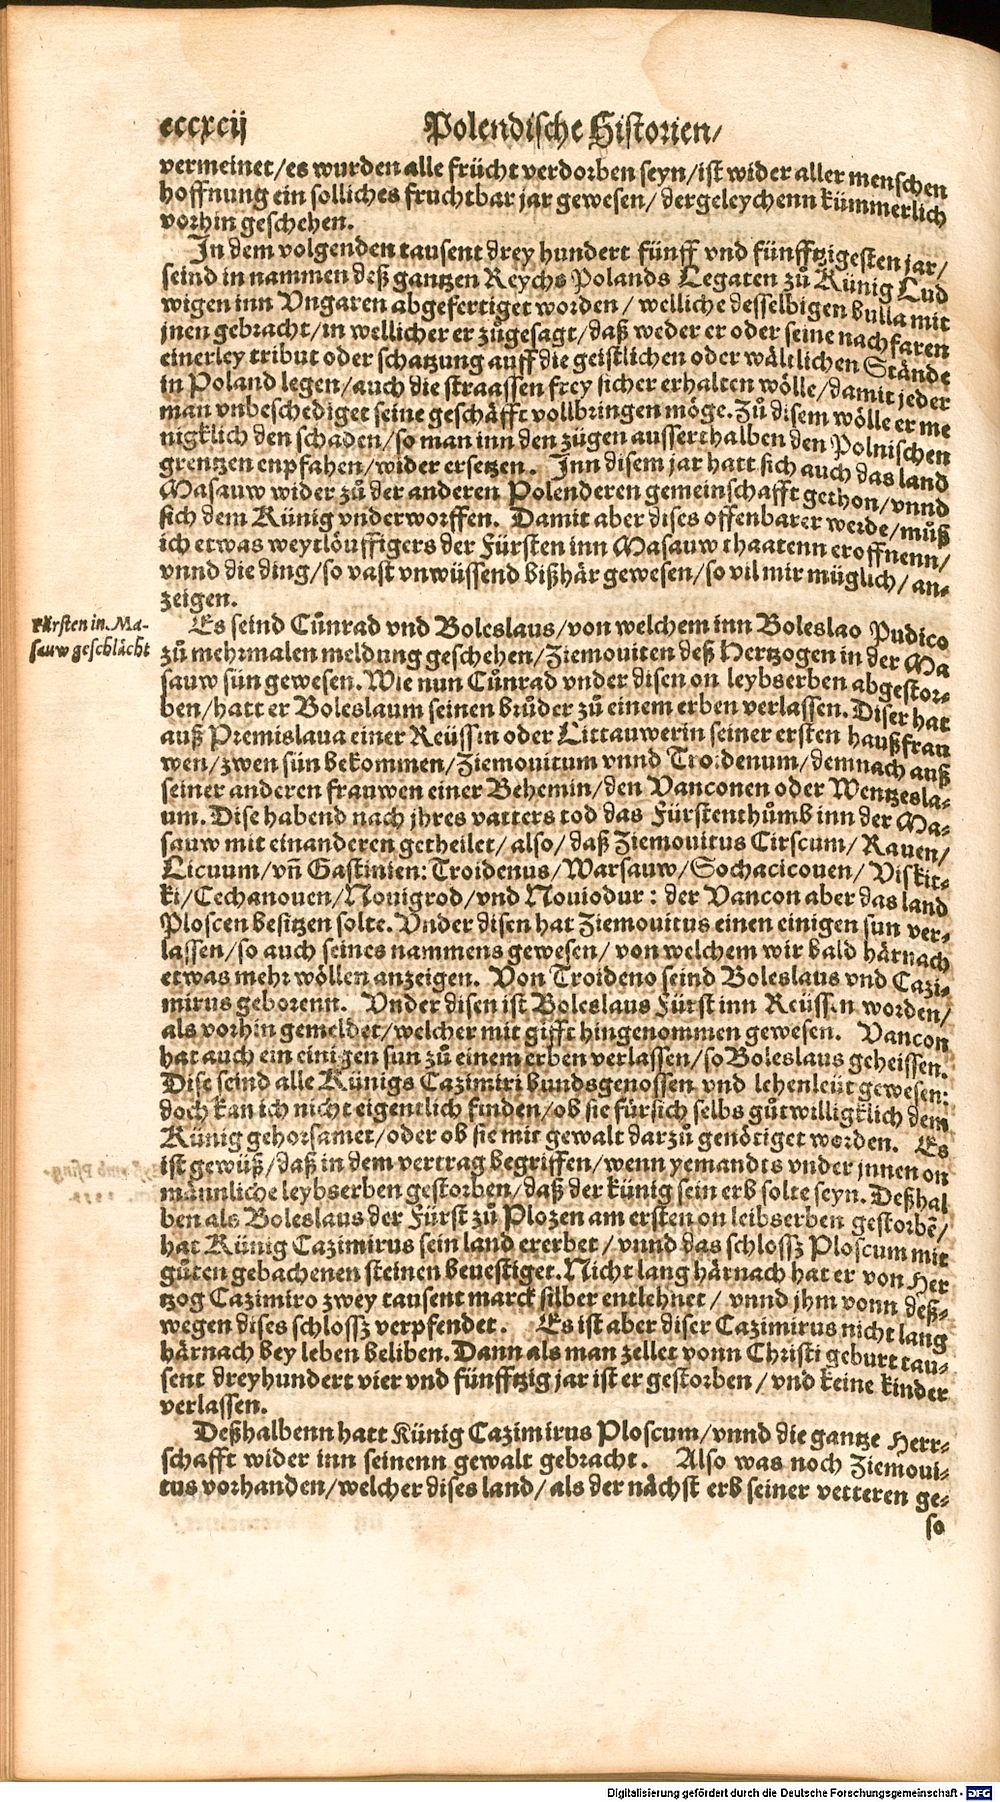 cccxcij
Polendische Historien/
vermeinet/es wurden alle frücht verdorben seyn/ist wider aller menschen
hoffnung ein solliches fruchtbar jar gewesen/ dergeleychenn kümmerlich
vorhin geschehen.
In dem volgenden tausent drey hundert fünff vnd fünfftzigesten jar/
seind in nammen deß gantzen Reychs Polands Legaten zů Künig Lud
wigen inn Vngaren abgefertiget worden/ welliche desselbigen bulla mit
jnen gebracht/in wellicher er zůgesagt/daß weder er oder seine nachfaren
einerley tribut oder schatzung auff die geistlichen oder wältlichen Stände
in Poland legen/auch die straassen frey sicher erhalten wölle/damit jeder
man vnbeschediget seine geschäfft vollbringen möge. Zů disem wölle er me
nigklich den schaden/so man inn den zügen ausserthalben den Polnischen
grentzen enpfahen/wider ersetzen. Inn disem jar hatt sich auch das land
Masauw wider zů der anderen Polenderen gemeinschafft gethon/vnnd
sich dem Künig vnderworffen. Damit aber dises offenbarer werde/můß
ich etwas weytlöuffigers der Fürsten inn Masauw thaatenn eroffnenn/
vnnd die ding/so vast vnwüssend bißhär gewesen/so vil mir müglich/an-
zeigen.
Fürsten in Ma-
sauw geschlächt
Es seind Cůnrad vnd Boleslaus/von welchem inn Boleslao Pudico
zů mehrmalen meldung geschehen/Ziemouiten deß Hertzogen in der Ma
sauw sün gewesen. Wie nun Cůnrad vnder disen on leybserben abgestor-
ben/hatt er Boleslaum seinen brůder zů einem erben verlassen. Diser hat
auß Premislaua einer Reüssin oder Littauwerin seiner ersten haußfrau
wen/zwen sün bekommen/Ziemouitum vnnd Troidenum/demnach auß
seiner anderen frauwen einer Behemin/den Vanconen oder Wentzesla-
um. Dise habend nach jhres vatters tod das Fürstenthůmb inn der Ma-
sauw mit einanderen getheilet/also/daß Ziemouitus Cirscum/Rauen/
Licuum/vñ Gastinien: Troidenus/Warsauw/Sochacicouen/Viskit-
ki/Cechanouen/Nouigrod/vnd Nouiodur: der Vancon aber das land
Ploscen besitzen solte. Vnder disen hat Ziemouitus einen einigen sun ver-
lassen/so auch seines nammens gewesen/von welchem wir bald härnach
etwas mehr wöllen anzeigen. Von Troideno seind Boleslaus vnd Cazi-
mirus geborenn. Vnder disen ist Boleslaus Fürst inn Reüssen worden/
als vorhin gemeldet/welcher mit gifft hingenommen gewesen. Vancon
hat auch ein einigen sun zů einem erben verlassen/so Boleslaus geheissen.
Dise seind alle Künigs Cazimiri bundsgenossen vnd lehenleüt gewesen:
doch kan ich nicht eigentlich finden/ob sie fürsich selbs gůtwilligklich dem
Künig gehorsamet/oder ob sie mit gewalt darzů genötiget worden. Es
ist gewüß/daß in dem vertrag begriffen/wenn yemandts vnder jnnen on
männliche leybserben gestorben/daß der künig sein erb solte seyn. Deßhal
ben als Boleslaus der Fürst zů Plozen am ersten on leibserben gestorbẽ/
hat Künig Cazimirus sein land ererbet/vnnd das schlossz Ploscum mit
gůten gebachenen steinen beuestiget. Nicht lang härnach hat er von Her
tzog Cazimiro zwey tausent marck silber entlehnet/vnnd jhm vonn deß-
wegen dises schlossz verpfendet. Es ist aber diser Cazimirus nicht lang
härnach bey leben beliben. Dann als man zellet vonn Christi geburt tau-
sent dreyhundert vier vnd fünfftzig jar ist er gestorben/vnd keine kinder
verlassen.
Deßhalbenn hatt Künig Cazimirus Ploscum/vnnd die gantze Herr-
schafft wider inn seinenn gewalt gebracht. Also was noch Ziemoui-
tus vorhanden/welcher dises land/als der nächst erb seiner vetteren ge-
so
Digitalisierung gefördert durch die Deutsche Forschungsgemeinschaft - DFG